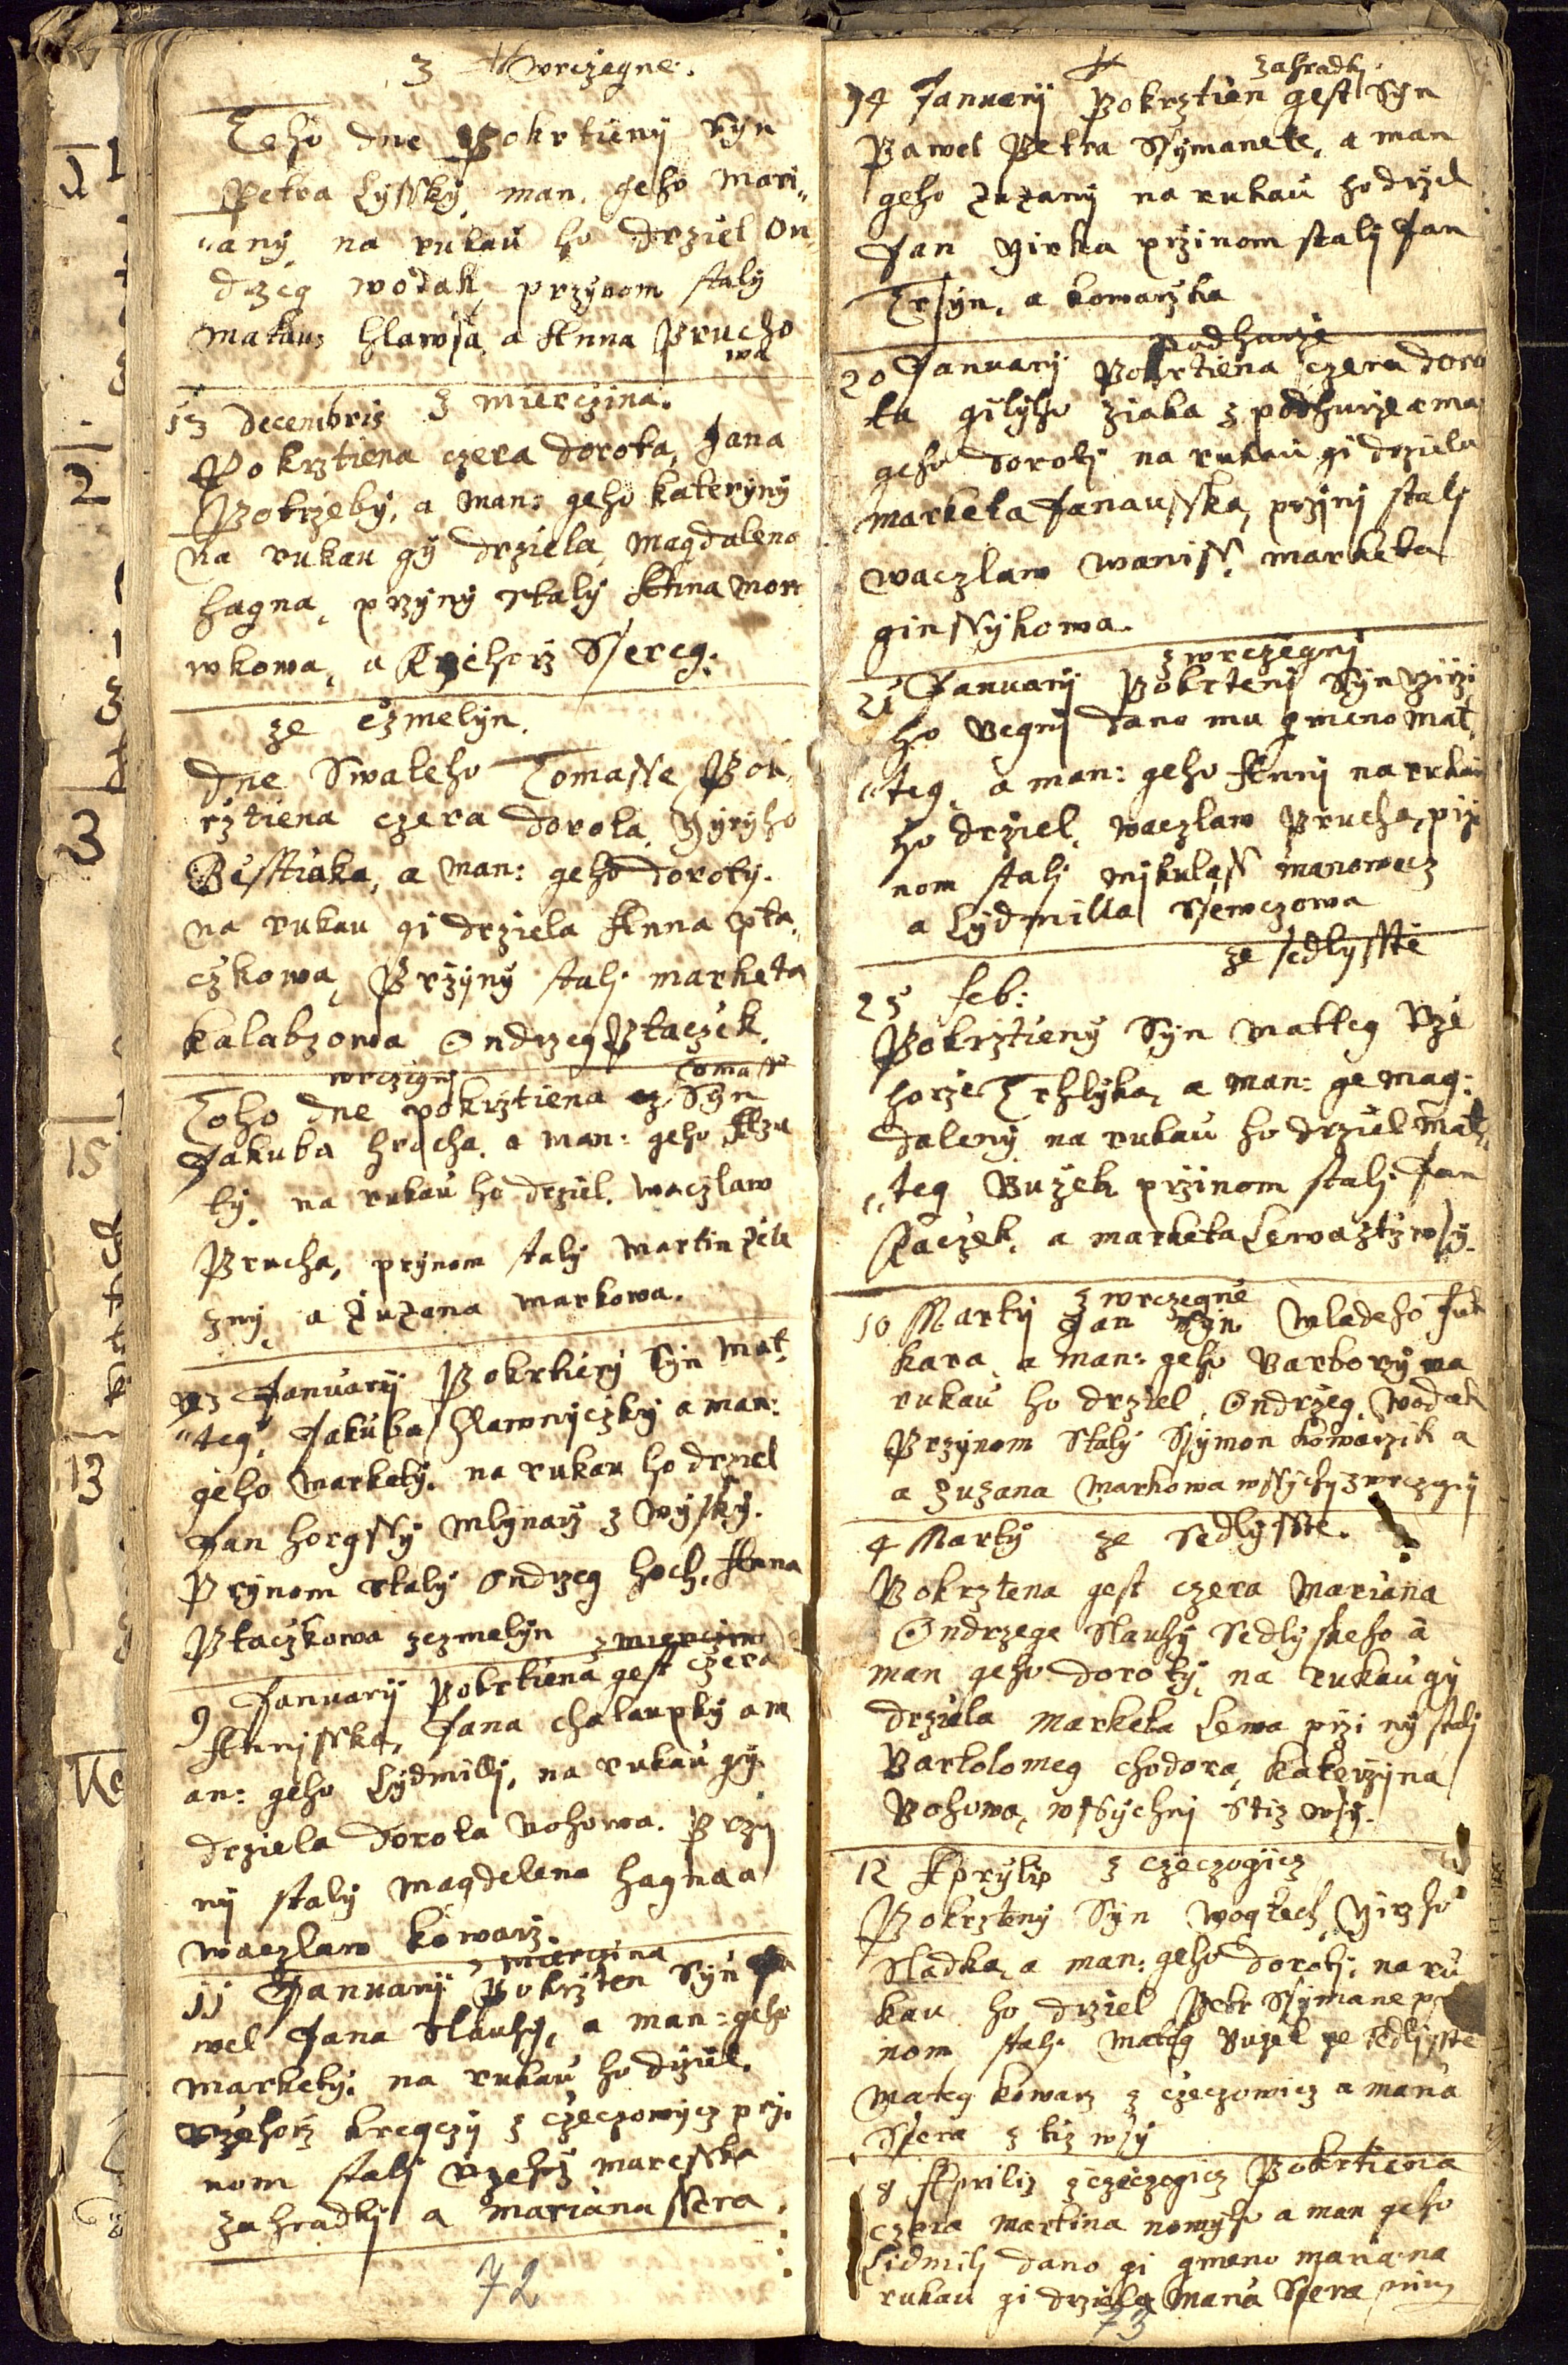 z wrczegne.
Teho dne Pokrtieny Syn
Petra Lyssky man. geho Mari„
„any na rukau ho drziel On
drzeg wodak, przynom staly
matauz hlawsa, a Anna Prucho
wa
z mierczina.
13 Decembris
Pokrztiena czera dorota, Jana
Potrzeby, a man: geho kateryny
na rukau gy drziela, Magdalena
hagna, przyny staly Anna mor
wkowa, a Rzehorz Ssereg:
ze czmelyn.
Dne Swateho Tomasse Pok„
rztiena czera dorota, Gyryho
Bisstiaka, a man: geho doroty.
na rukau gi drziela Anna pta„
czkowa, Przyny stalj marketa
kalabzowa Ondrzeg Ptaczek.
wrczegni Tomass
Toho dne pokrztiena Syn
Jakuba hrocha. a man: geho
ty. na rukau ho drziel. waczlaw
Prucha, prynom staly Martin
zny a Zuzana Markowa.
3 January Pokrtieny Syn Mat„
„teg, Jakuba hlawnyczky a man:
geho Markety. na rukau ho drziel
Jan horgssy Mlynarz z wysky.
Prynom staly Ondrzeg hoch, Anna
Ptaczkowa zczmelyn z mierczin
9 January Pokrtiena gest czera
Annisska, Jana chalaupky a m
an: geho Lydmilly, na rukau gy
drziela dorota Bohowa. Przy
ny staly Magdelena hagna a
waczlaw kowarz.
z mierczina
11 January Pokrzten Syn Pa
wel Jana Slauhy, a man: geho
Markety. na rukau ho drziel.
Rzehorz kregczy z czeczowycz pry.
nom stalj Rzehorz maresska
zahradky a Mariana ssera
72
zahradky
14 January Pokrztien gest Syn
Pawel Petra Ssymanete, a man
geho Zuzany na rukau ho drzel
Jan Girka przinom stalj Jan
Trsyn, a komarzka
podhurze
20 January Pokrtiena czera doro
ta gilyho ziaka z podhurze a ma
geho dorotj na rukau gi drziela
marketa Janausska, przyny stalj
waczlaw waniss, marketa
ginssykowa.
z wrczegni
21 January Pokrteny Syn Rzirzi
ho Vegni dano mu gmeno Mat„
„teg, a man: geho Anny na rukau
ho drziel, waczlaw Prucha, prz
nom stalj mykulass manowecz
a Lydmilla Ssewczowa
ze sedlysste
25 feb:
Pokrztieny Syn Matteg Rze
horze Trhlyka, a man: ge Mag:
daleny na rukau ho drziel Mat„
„teg Buzek przinom stalj Jan
Raczek, a marketa Lewa ztz wsy.
z wrczegne
10 Marty Jan Syn Mladeho Fuk
kara, a man: geho Barbory na
rukau ho drziel, Ondrzeg wodak
Przynom Staly Ssymon kowarzik a
a Zuzana Markowa wssychy z wrczegny
4 Marty ze Sedlysste.
Pokrztena gest czera Mariana
Ondrzege Slauhy Sedlyskeho a
man geho doroty, na rukau gy
drziela marketa Lewa przi ny stalj
Bartolomeg chodora, katerzyna
Bohowa, wssychnj Stiz wsy.
12 Aprylis z czeczogicz
Pokrzteny Syn wogtech Girzho
Sladka, a man: geho dorotj, na ru
kau ho drziel Petr Ssymane prz
nom stalj Mateg Buzek ze sedlysste
Mateg kowarz z czeczowicz a Maria
Ssera z tiz wsy
8 Aprilis z czeczegicz Pokrtiena
czera Martina nowyho a man geho
Lidmilj dano gi gmeno Maria. na
rukau gi drziela Maria Ssera
73